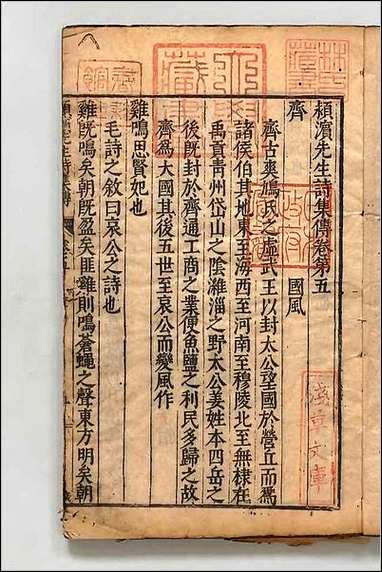 潁濱先生詩集傳卷第五
齊 國風
齊古爽鳩氏之虛武王以封太公望國於營丘而爲
諸侯伯其地東至海西至河南至穆陵北至無棣在
禹貢青州岱山之陰濰淄之野太公姜姓本四岳之
後既封於齊通工商之業便魚鹽之利民多歸之故
齊爲大國其後五世至哀公而變風作
雞鳴思賢妃也
毛詩之敘曰哀公之詩也
雞旣鳴矣朝旣盈矣匪雞則鳴蒼蠅之聲東方明矣朝
淺草文庫